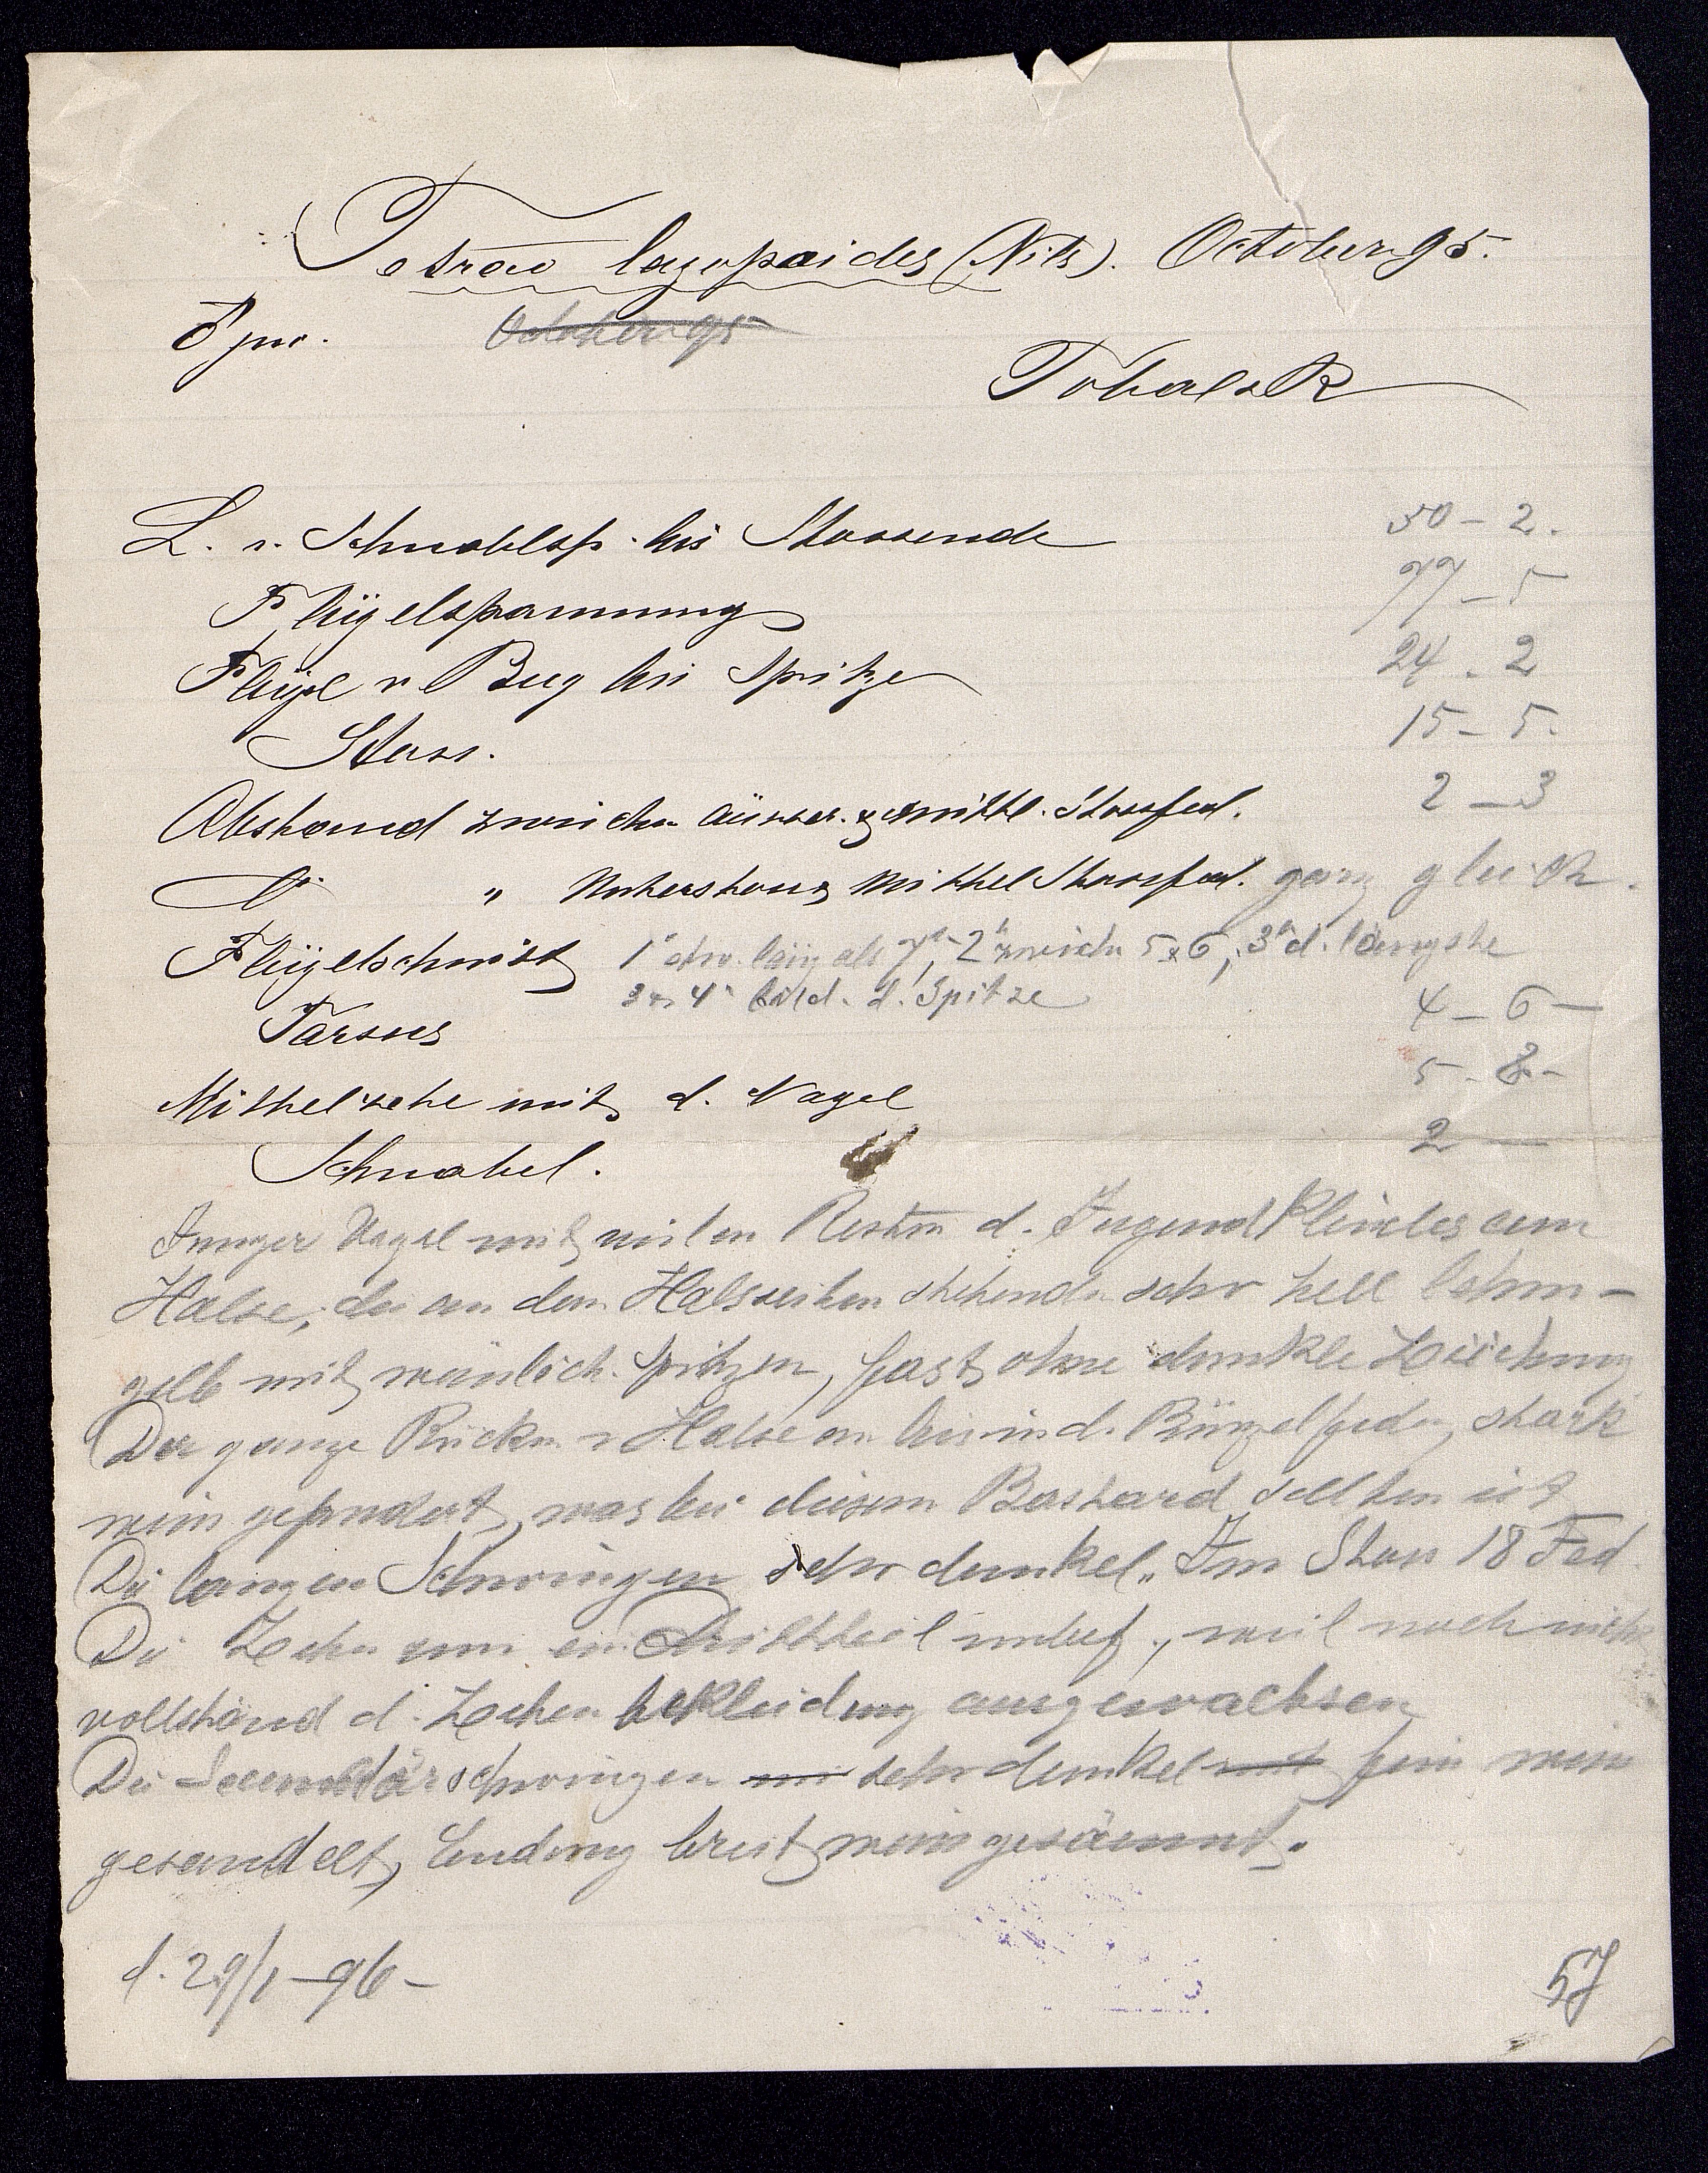 Tetrao lagopoides (Nils). October 95.
♂ juv. October 95
Tobolsk
L. v. Schnabelsp. bis Stossende 50 – 2.
Flügelspannung 77 – 5
Flügel v. Bug bis Spitze 24 . 2
Stoss. 15 – 5.
Abstand zwischen äusser. & mittl. Stossfed. 2 – 3
D° " Unterstoss & Mittel Stossfed. ganz gleich.
Flügelschnitt 1° etw. läng als 7°, 2° zwisch 5 & 6, 3° d. längste
3 & 4° bild. d. Spitze
Tarsus 4 – 6 –
Mittelzehe mit d. Nagel 5 – 8 –
Schnabel. 2 —
Junger Vogel mit vielen Resten d. Jugendkleides am
Halse, die an den Halsseiten stehenden sehr hell lehm-
gelb mit weislich. Spitzen, fast ohne dunkle Zeichnung
Der ganze Rücken v Halse an bis in d. Bürzelfedn, stark
weis gepudert, was bei diesem Bastard selten ist
Die langen Schwingen sehr dunkel. Im Stoss 18 Fed
Die Zehen zum ein Drittheil unbef., weil noch nicht
vollständ d. Zehenbekleidung ausgewachsen
Die Secundärschwingen sehr dunkel mit fein weis
gesandelt, Endung breit weis gesäumt.
d. 29/1 – 96 –
57